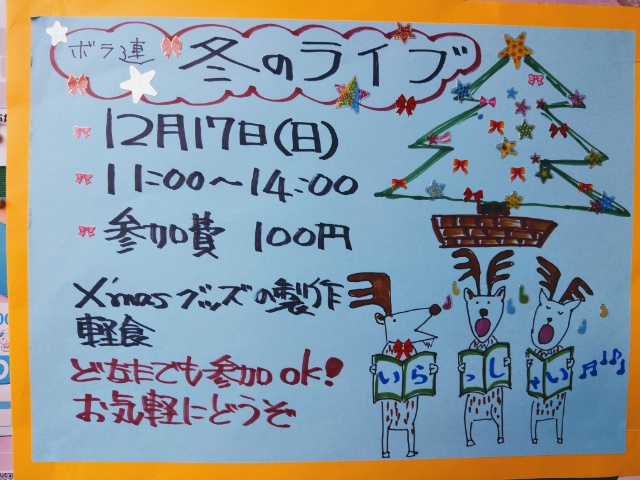 ボラ連 冬のライブ
12月17日(日)
11:00〜14:00
参加費 100円
X'masグッズの製作
軽食
どなたでも参加ok!
お気軽にどうぞ
いら
っし
ゃい